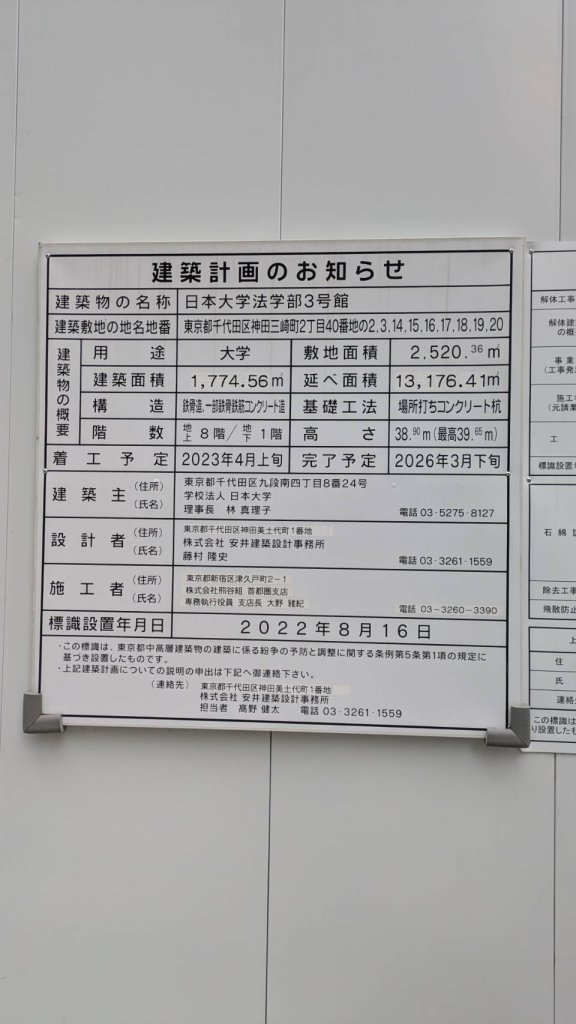 建築計画のお知らせ
建築物の名称 日本大学法学部3号館
建築敷地の地名地番 東京都千代田区神田三崎町2丁目40番地の2,3,14,15,16,17,18,19,20
建築物の概要
用途 大学 敷地面積 2,520.36㎡
建築面積 1,774.56㎡ 延べ面積 13,176.41㎡
構造 鉄骨造、一部鉄骨鉄筋コンクリート造 基礎工法 場所打ちコンクリート杭
階数 地上8階/地下1階 高さ 38.90m(最高39.65m)
着工予定 2023年4月上旬 完了予定 2026年3月下旬
建築主 (住所) 東京都千代田区九段南四丁目8番24号
(氏名) 学校法人 日本大学
理事長 林 真理子 電話 03-5275-8127
設計者 (住所) 東京都千代田区神田美土代町1番地
(氏名) 株式会社 安井建築設計事務所
藤村 隆史 電話 03-3261-1559
施工者 (住所) 東京都新宿区津久戸町2-1
(氏名) 株式会社熊谷組 首都圏支店
専務執行役員 支店長 大野 雅紀 電話 03-3260-3390
標識設置年月日 2022年8月16日
・この標識は、東京都中高層建築物の建築に係る紛争の予防と調整に関する条例第5条第1項の規定に
基づき設置したものです。
・上記建築計画についての説明の申出は下記へ御連絡下さい。
(連絡先) 東京都千代田区神田美土代町1番地
株式会社 安井建築設計事務所
担当者 高野 健太 電話 03-3261-1559
解体工事
解体建
の概
事業
(工事発
施工
(元請業
工
標識設置
石綿
除去工事
飛散防止
上
住
氏
連絡
この標識は
り設置したも